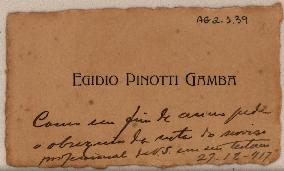 AG2.3.39
EGIDIO PINOTTI GAMBA
Como em fim de anno pede
o obrezendo da nota do serviço
profissional de V.S. em seu
27-12-917